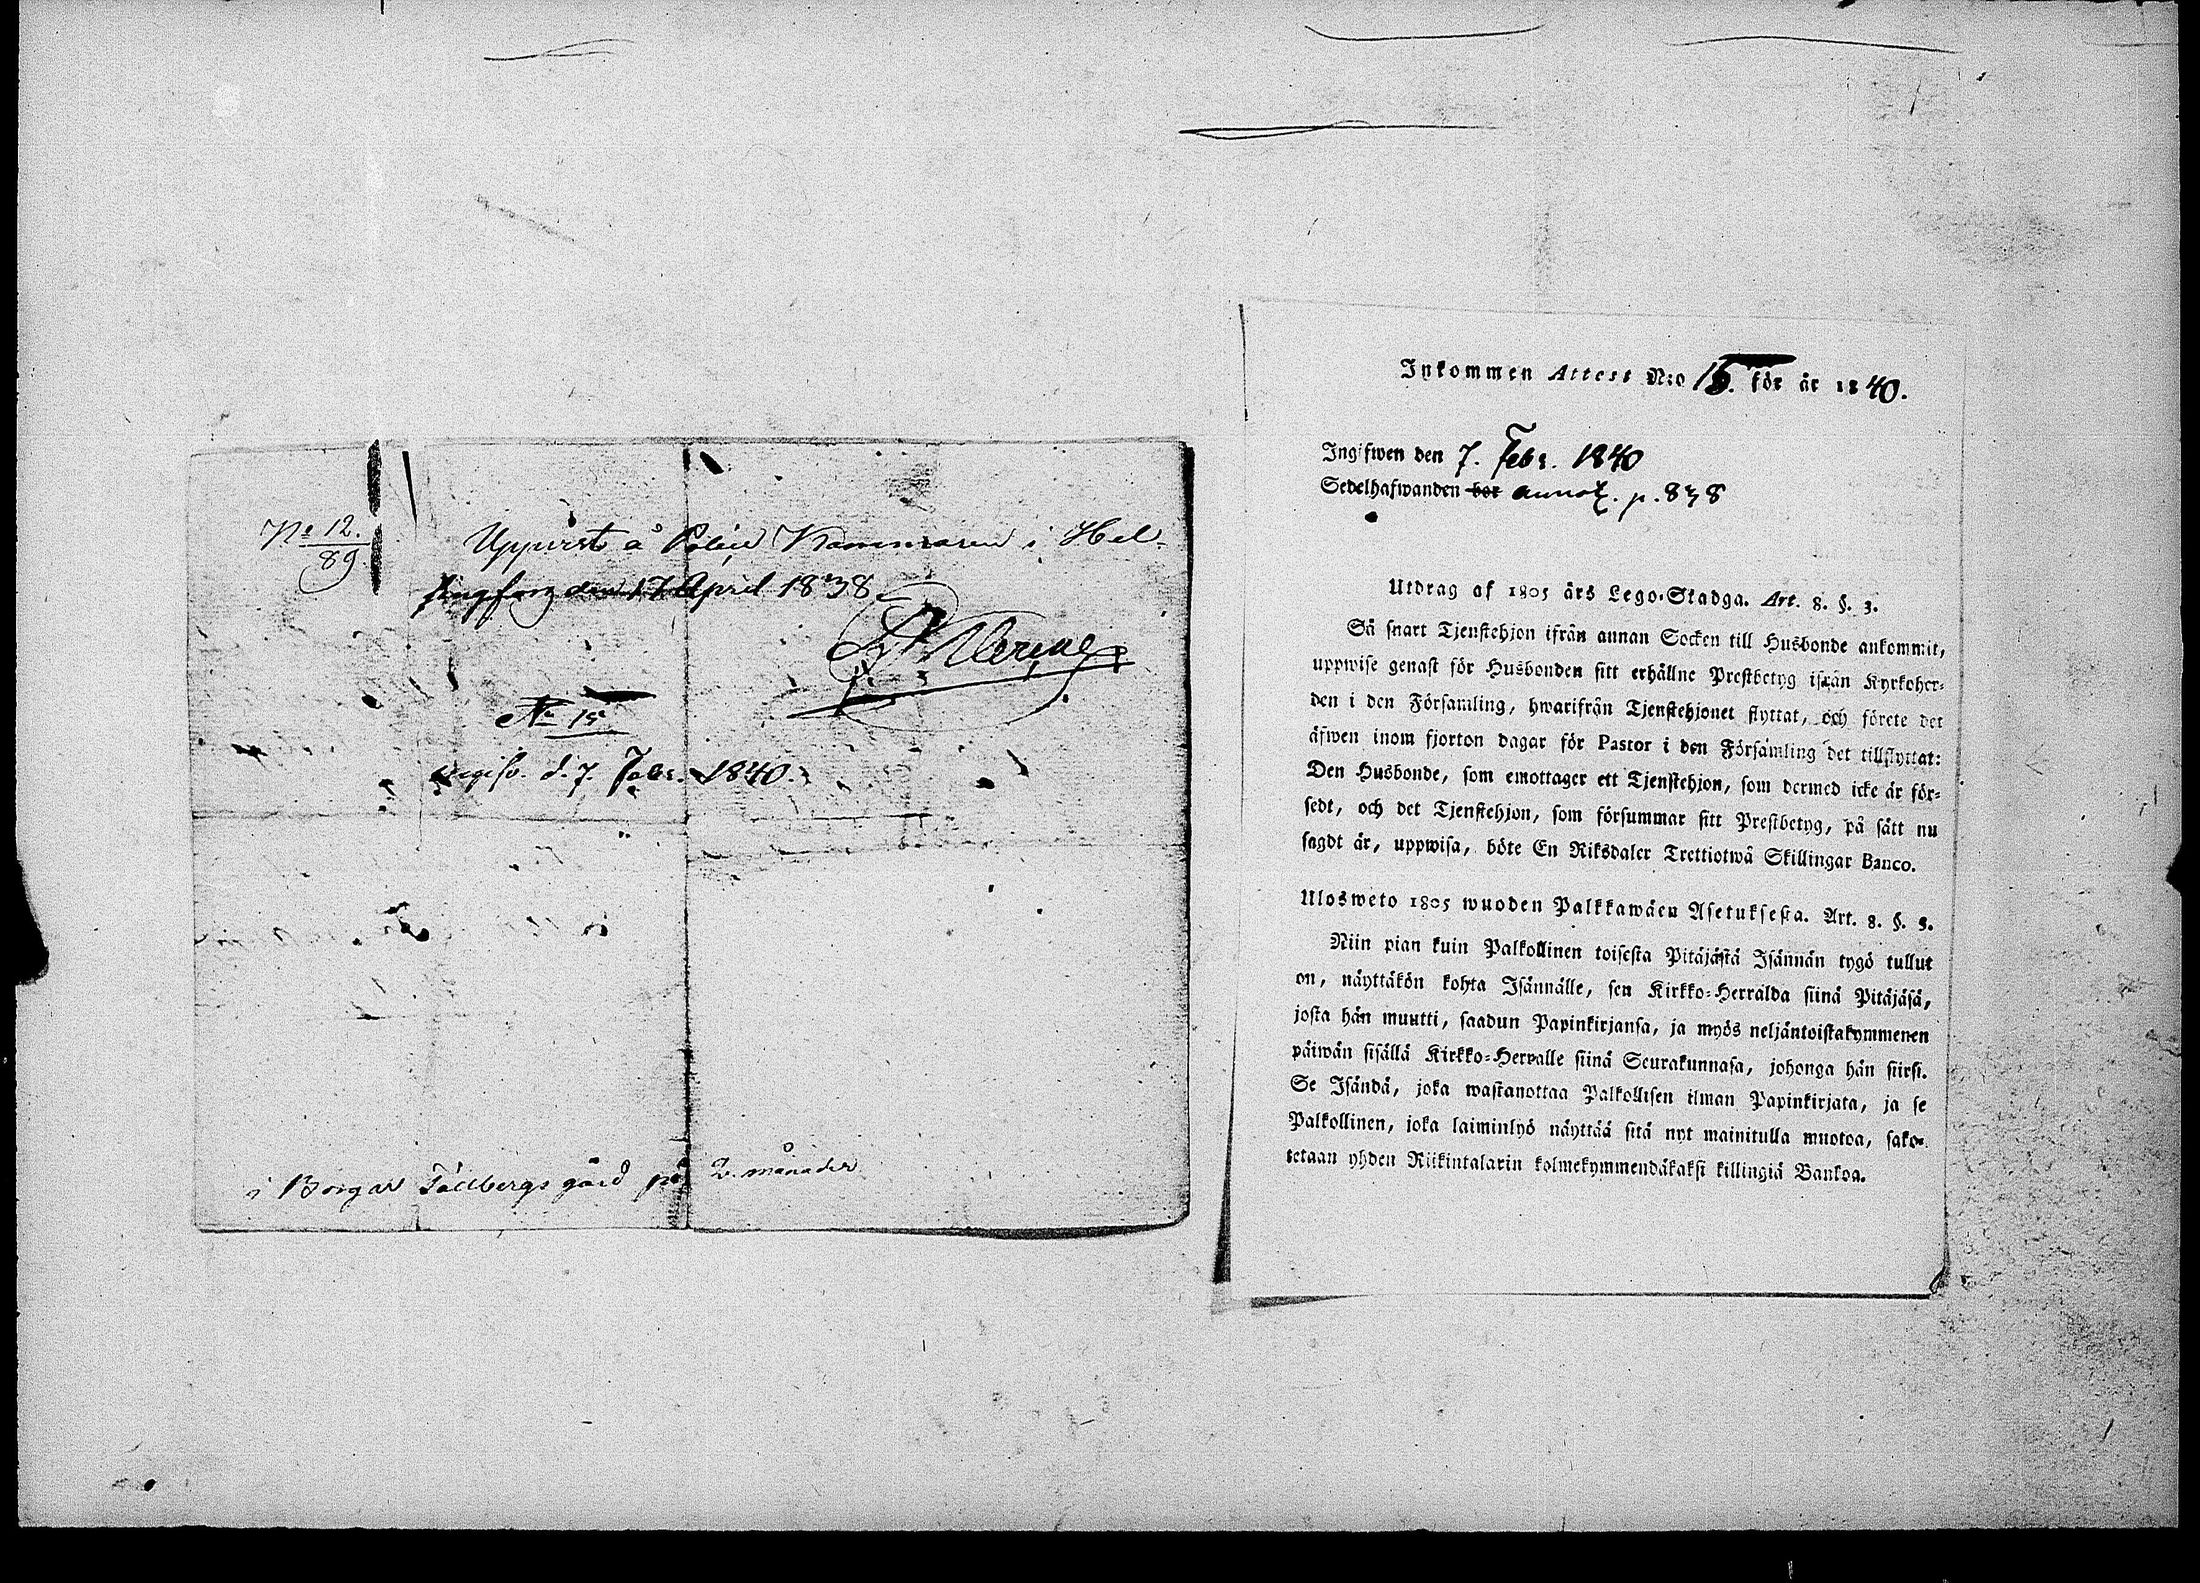 No 12.
89
Uppvist å Police Kammaren i Hel-
singfors den 17 April 1838
No 15
ingifv. d. 7. Febr. 1840.
i Borgar Tallbergs gård på 2 månader
Inkommen Attest N:o 15. för år 1840.
Ingifwen den 7. Febr. 1840
Sedelhafwanden bor annot. p. 838
Utdrag af 1805 års Lego-Stadga. Art. 8. §. 3.
Så snart Tjenstehjon ifrån annan Socken till Husbonde ankommit,
uppwise genast för Husbonden sitt erhållne Prestbetyg ifrån Kyrkoher-
den i den Församling, hwarifrån Tjenstehjonet flyttat, och förete det
äfwen inom fjorton dagar för Pastor i den Församling det tillflyttat:
Den Husbonde, som emottager ett Tjenstehjon, som dermed icke är för-
sedt, och det Tjenstehjon, som försummar sitt Prestbetyg, på sätt nu
sagdt är, uppwisa, böte En Riksdaler Trettiotwå Skillingar Banco.
Ulosweto 1805 wuoden Palkkawäen Asetuksesta. Art. 8. §. 3.
Niin pian kuin Palkollinen toisesta Pitäjästä Isännän tygö tullut
on, näyttäkön kohta Isännälle, sen Kirkko-Herralda siinä Pitäjäsä,
josta hän muutti, saadun Papinkirjansa, ja myös neljäntoistakymmenen
päiwän sisällä Kirkko-Herralle siinä Seurakunnasa, johonga hän siirsi.
Se Isändä, joka wastanottaa Palkollisen ilman Papinkirjata, ja se
Palkollinen, joka laiminlyö näyttää sitä nyt mainitulla muotoa, sako-
tetaan yhden Riikintalarin kolmekymmendäkaksi killingiä Bankoa.